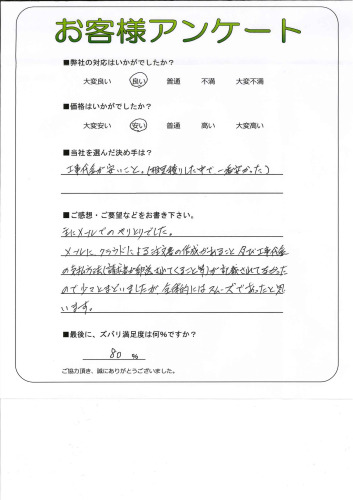 お客様アンケート
■弊社の対応はいかがでしたか?
大変良い 良い 普通 不満 大変不満
■価格はいかがでしたか?
大変安い 安い 普通 高い 大変高い
■当社を選んだ決め手は?
工事代金が安いこと。(相見積りした中で一番安かった)
■ご感想・ご要望などをお書き下さい。
主にメールでのやりとりでした。
メールに、クラウドによる注文書の作成があること 及び工事代金
の支払方法(請求書が郵送されてくること等)が記載されてなかった
ので少々とまどいましたが 全体的にはスムーズであったと思
います。
■最後に、ズバリ満足度は何%ですか?
80 %
ご協力頂き、誠にありがとうございました。